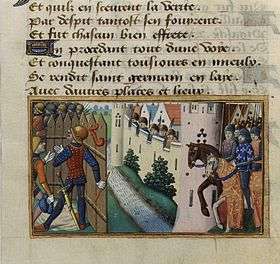 Et quilz en sceurent la verite
Par despit tantost sen fouyrent
Et fut chascun bien effree
En procedant tout dune voye
Et conquestant tousiours en
Se rendit saint germain en laye
Avec dautres places et lieux